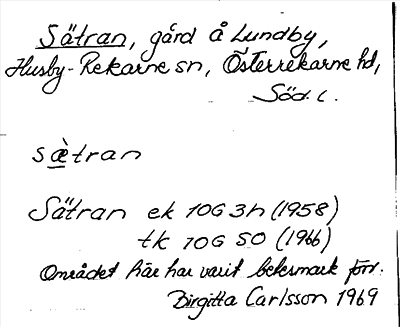 Sätran, gård å Lundby,
Husby-Rekarne sn, Österrekarne hd,
Söd. l.
sæ̀tran
Sätran ek 10G 3h (1958)
tk 10G SO (1966)
Området här har varit betesmark förr.
Birgitta Carlsson 1969